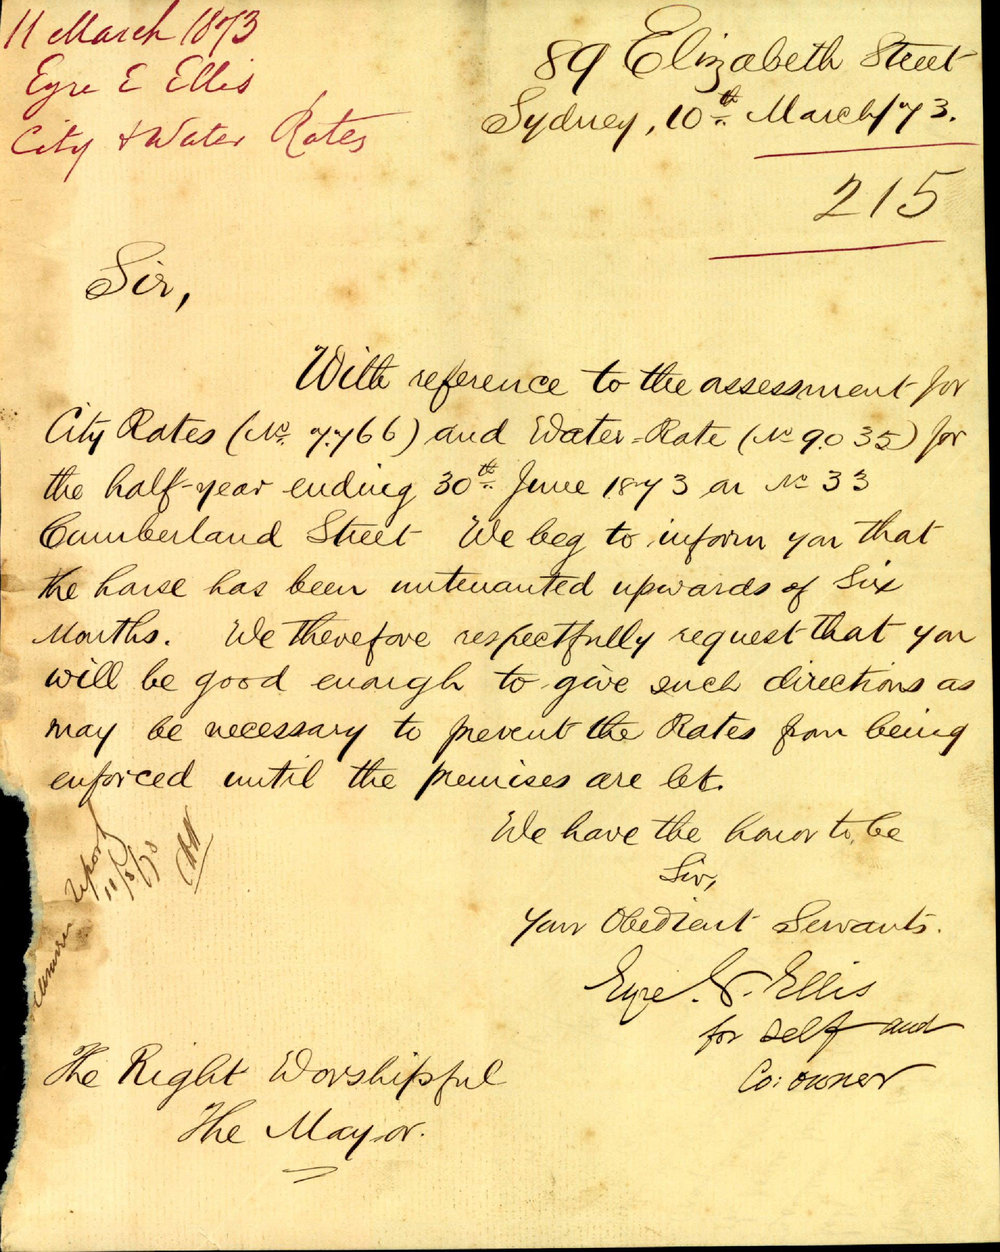 11 March 1873
Eyre E Ellis
City & Water Rates
89 Elizabeth Street
Sydney, 10th March/73.
215
Sir,
With reference to the assessment for
City Rates (No. 7.766) and Water-Rate (No 9.035) for
the half-year ending 30th June 1873 on No 33
Cumberland Street We beg to inform you that
the house has been untenanted upwards of Six
Months. We therefore respectfully request that you
will be good enough to give such directions as
may be necessary to prevent the Rates from being
enforced until the premises are let.
We have the honor to be
Sir,
Your Obedient Servants.
Eyre. . Ellis
for self and
Co: owner
Report
11/3/73
The Right Worshipful
The Mayor.